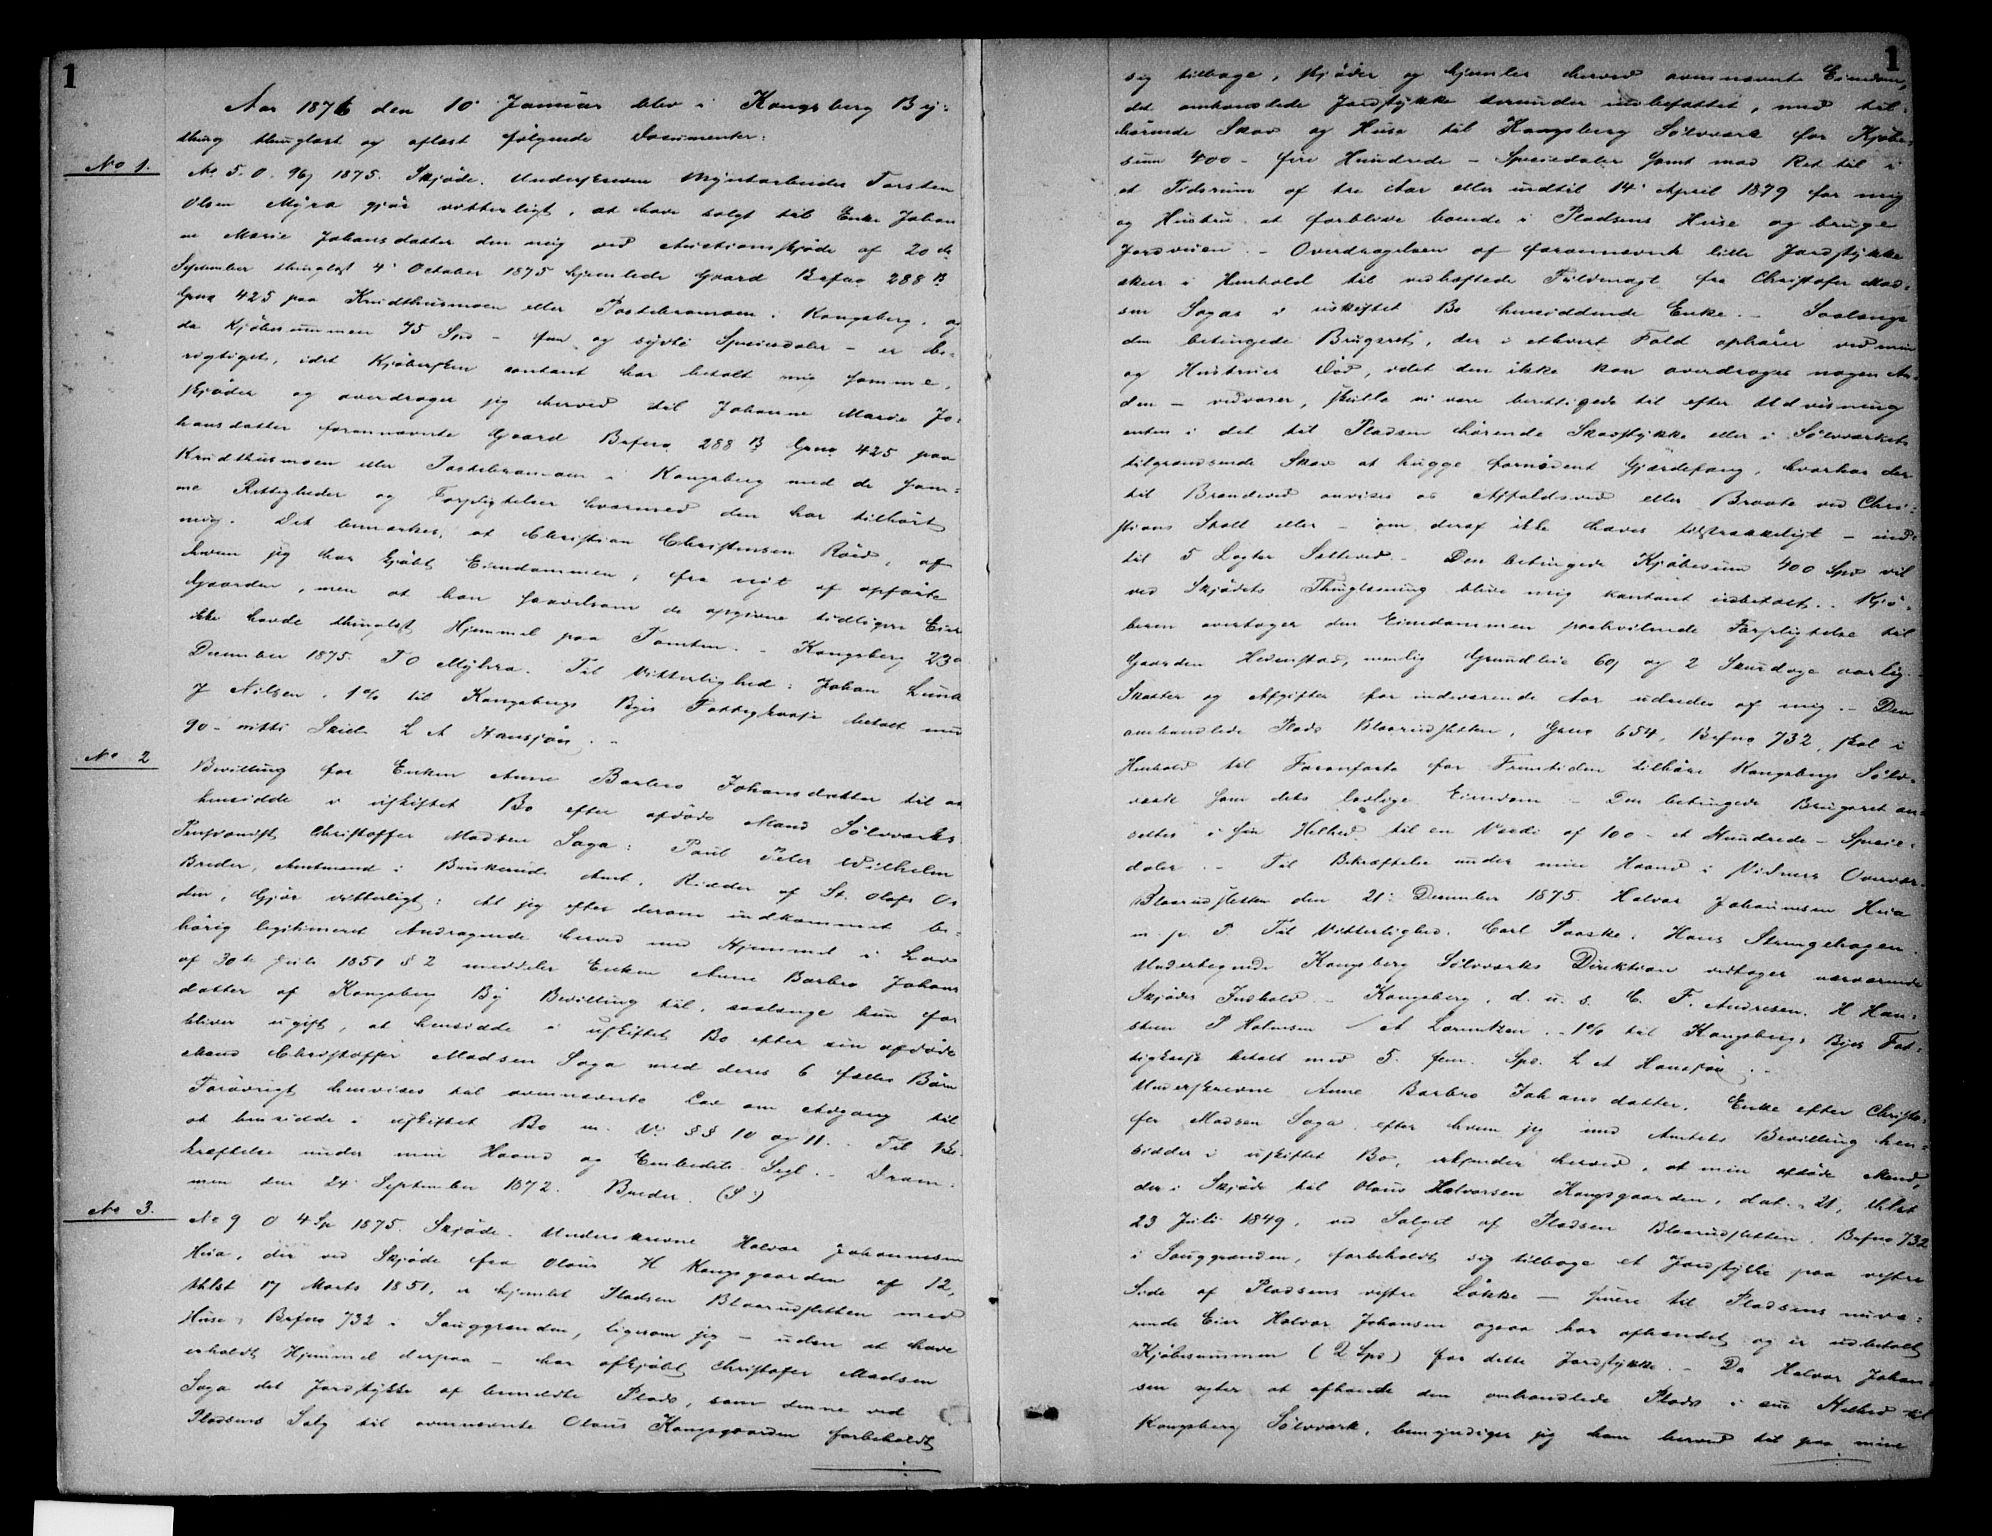 1
Aar 1876 den 10' Januar blev i Kongsberg By-
thing thinglæst og aflæst følgende Documenter:
No 1.
No 5. O. 96 1875. Skjøde. Underskrevne Myntarbeider Torsten
Olsen Myra gjør vitterligt, at have solgt til Enke Johan
ne Marie Johansdatter den mig ved Auctionsskjøde af 20de
September thinglæst 4' October 1875 hjemlede Gaard Brfno 288 B
Gno 425 paa Krudthusmoen eller i Kongsberg, og
da Kjøbesummen 75 Spd - fem og sytti Speciedaler - er be-
rigtiget, idet Kjøbersken contant har betalt mig samme,
skjøder og overdrager jeg herved til Johanne Marie Jo-
hansdatter forannævnte Gaard Brfno 288 B Gno 425 paa
Krudthusmoen eller i Kongsberg med de sam-
me Rettigheder og Forpligtelser hvormed den har tilhørt
mig. Det bemærkes, at Christian Christensen Röed, af
hvem jeg har kjøbt Eiendommen, fra nyt af opførte
Gaarden, men at han saavelsom de opgivne tidligere Eiere
ikke havde thinglæst Hjemmel paa Tomten. - Kongsberg 23de
December 1875. T O Myhra. Til Vitterlighed: Johan Lund
J Nilsen. 1% til Kongsbergs Byes Fattigkasse betalt med
90 - nitti Skill. L A Hansson. -
No 2
Bevilling for Enken Anne Barbro Johansdatter til at
hensidde i uskiftet Bo efter afdøde Mand Sølvværks
Pensionist Christoffer Madsen Saga: Paul Peter Wilhelm
Breder, Amtmand i Buskeruds Amt, Ridder af St. Olafs Or
den, Gjør vitterligt: At jeg efter derom indkommet be-
hørig legitimeret Andragende herved med Hjemmel i Lov
af 30te Juli 1851 § 2 meddeler Enken Anne Barbro Johans
datter af Kongsberg By Bevilling til, saalænge hun for
bliver ugift, at hensidde i uskiftet Bo efter sin afdøde
Mand Christoffer Madsen Saga med deres 6 fælles Børn
Forøvrigt henvises til ovennævnte Lov om Adgang til
at hensidde i uskiftet Bo m. V. §§ 10 og 11. - Til Be-
kræftelse under min Haand og Embedets Segl. - Dram-
men den 24' September 1872. Breder. (S.)
No 3.
No 9 O 4 Sp 1875. Skjøde. Underskrevne Halvor Johannesen
Hua, der ved Skjøde fra Olaus H Kongsgaarden af 12,
thlst 17 Marts 1851, er hjemlet Pladsen Blaarudsletten med
Huse, Brfno 732 i Sauggrænden, ligesom jeg - uden at have
erholdt Hjemmel derpaa - har afkjøbt Christofer Madsen
Saga det Jordstykke af bemeldte Plads, som denne ved
Pladsens Salg til ovennævnte Olaus Kongsgaarden forbeholdt
1
sig tilbage, skjøder og hjemler herved ovennævnte Eiendom,
det omhandlede Jordstykke derunder indbefattet, med til-
hørende Skov og Huse til Kongsberg Sølvværk for Kjøbe-
sum 400 - fire Hundrede - Speciedaler samt mod Ret til i
et Tidsrum af tre Aar eller indtil 14' April 1879 for mig
og Hustru at forblive boende i Pladsens Huse og bruge
Jordveien. - Overdragelsen af forannævnte lille Jordstykke
skeer i Henhold til vedhæftede Fuldmagt fra Christofer Mad-
sen Sagas i uskiftet Bo hensiddende Enke. - Saalænge
den betingede Brugsret, der i ethvert Fald ophører ved min
og Hustrues Død, idet den ikke kan overdrages nogen An-
den - vedvarer, skulle vi være berettigede til efter Udvisning
enten i det til Pladsen hørende Skovstykke eller i Sølvværkets
tilgrændsende Skov at hugge fornødent Gjærdefang, hvorhos der
til Brændeved anvises os Affaldsved eller Braate ved Chri-
stians Stoll eller - om deraf ikke haves tilstrækkeligt - ind-
til 5 Lagter Setteved. - Den betingede Kjøbesum 400 Spd vil
ved Skjødets Thinglæsning blive mig kontant udbetalt. - Kjø-
beren overtager den Eiendommen paahvilende Forpligtelse til
Gaarden Hedenstad, nemlig Grundleie 60 og 2 Skurdage aarlig. -
Skatter og Afgifter for indeværende Aar udredes af mig. - Den
omhandlede Plads Blaarudsletten, Gno 654, Brfno 732, skal i
Henhold til Foranførte for Fremtiden tilhøre Kongsbergs Sølv-
værk som dets lovlige Eiendom. - Den betingede Brugsret an-
sættes i sin Helhed til en Værdi af 100 - et Hundrede - Specie-
daler. - Til Bekræftelse under min Haand i Vidners Overvær -
Blaarudsletten den 21' December 1875. Halvor Johannesen Hua
m. p. P. Til Vitterlighed. Carl Paaske. Hans Strengehagen.
Undertegnede Kongsberg Sølvværks Direktion vedtager nærværende
Skjødes Indhold. - Kongsberg, d. u. s. C. F. Andresen. H Han-
steen P Holmsen / A Lorentzen. - 1% til Kongsbergs Byes Fat-
tigkasse betalt med 5. fem. Spd. L A Hansson. -
Underskrevne Anne Barbro Johansdatter, Enke efter Christo-
fer Madsen Saga, efter hvem jeg med Amtets Bevilling hen-
sidder i uskiftet Bo, erkjender herved, at min afdøde Mand,
der i Skjøde til Olaus Halvorsen Kongsgaarden, dat. 21, thlst
23 Juli 1849, ved Salget af Pladsen Blaarudsletten, Brfno 732
i Sauggrænden, forbeholdt sig tilbage et Jordstykke paa vestre
Side af Pladsens vestre Løkke - senere til Pladsens nuvæ-
rende Eier Halvor Johansen ogsaa har afhændet og er udbetalt
Kjøbesummen (2 Spd) for dette Jordstykke. - Da Halvor Johan
sen agter at afhænde den omhandlede Plads i sin Helhed til
Kongsberg Sølvværk, bemyndiger jeg ham herved til paa mine